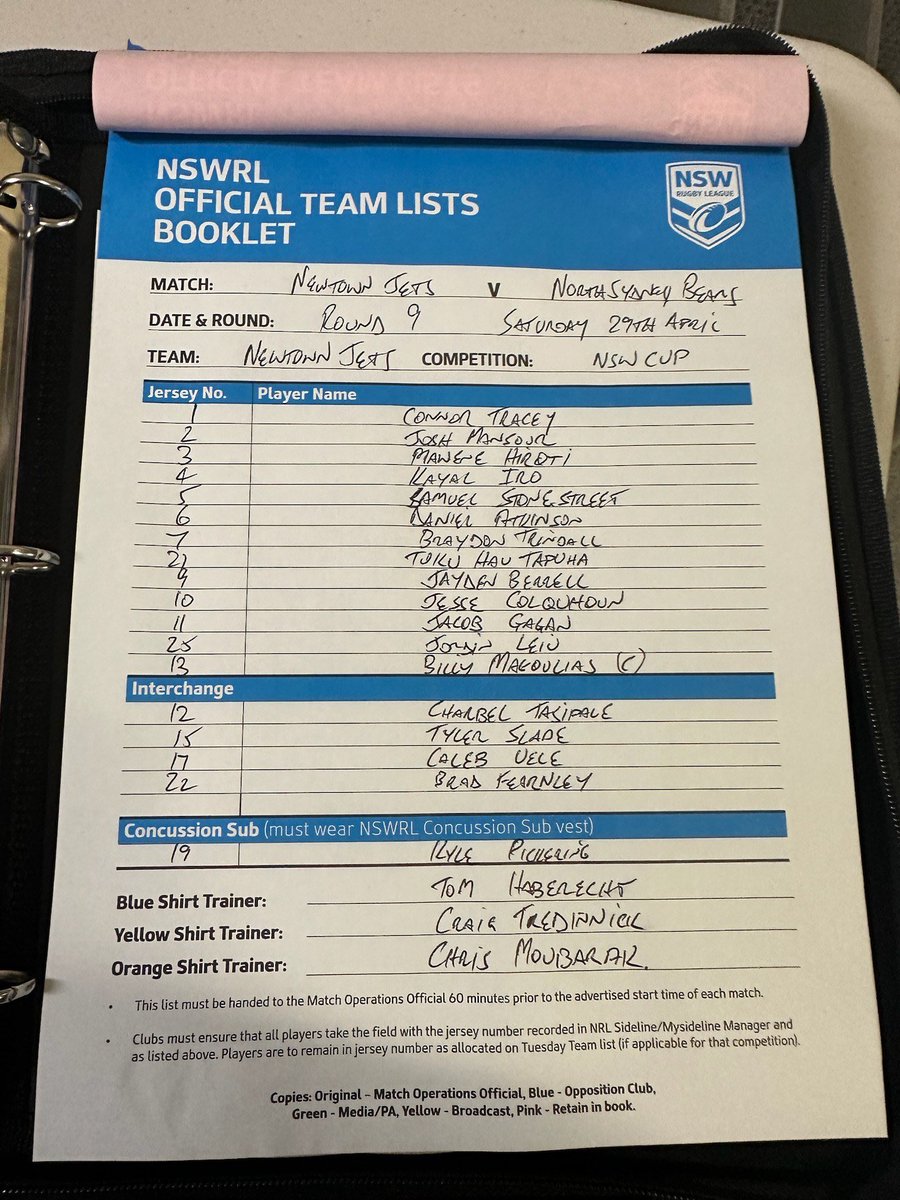 NSWRL
OFFICIAL TEAM LISTS
BOOKLET
NSW
RUGBY LEAGUE
MATCH: NEWTOWN JETS V NORTH SYDNEY BEARS
DATE & ROUND: ROUND 9 SATURDAY 29TH APRIL
TEAM: NEWTOWN JETS COMPETITION: NSW CUP
Jersey No. Player Name
1 CONNOR TRACEY
2 JOSH MANSOUR
3 MAWENE HIROTI
4 KAYAL IRO
5 SAMUEL STONESTREET
6 DANIEL ATKINSON
7 BRAYDON TRINDALL
21 TUKU HAU TAPUHA
9 JAYDEN BERRELL
10 JESSE COLQUHOUN
11 JACOB GAGAN
25 JORDIN LEIU
13 BILLY MAGOULIAS (C)
Interchange
12 CHARBEL TASIPALE
15 TYLER SLADE
17 CALEB UELE
22 BRAD FEARNLEY
Concussion Sub (must wear NSWRL Concussion Sub vest)
19 KYLE PICKERING
Blue Shirt Trainer: TOM HABERECHT
Yellow Shirt Trainer: CRAIG TREDINNICK
Orange Shirt Trainer: CHRIS MOUBARAK.
• This list must be handed to the Match Operations Official 60 minutes prior to the advertised start time of each match.
• Clubs must ensure that all players take the field with the jersey number recorded in NRL Sideline/Mysideline Manager and
as listed above. Players are to remain in jersey number as allocated on Tuesday Team list (if applicable for that competition).
Copies: Original – Match Operations Official, Blue - Opposition Club,
Green - Media/PA, Yellow - Broadcast, Pink - Retain in book.